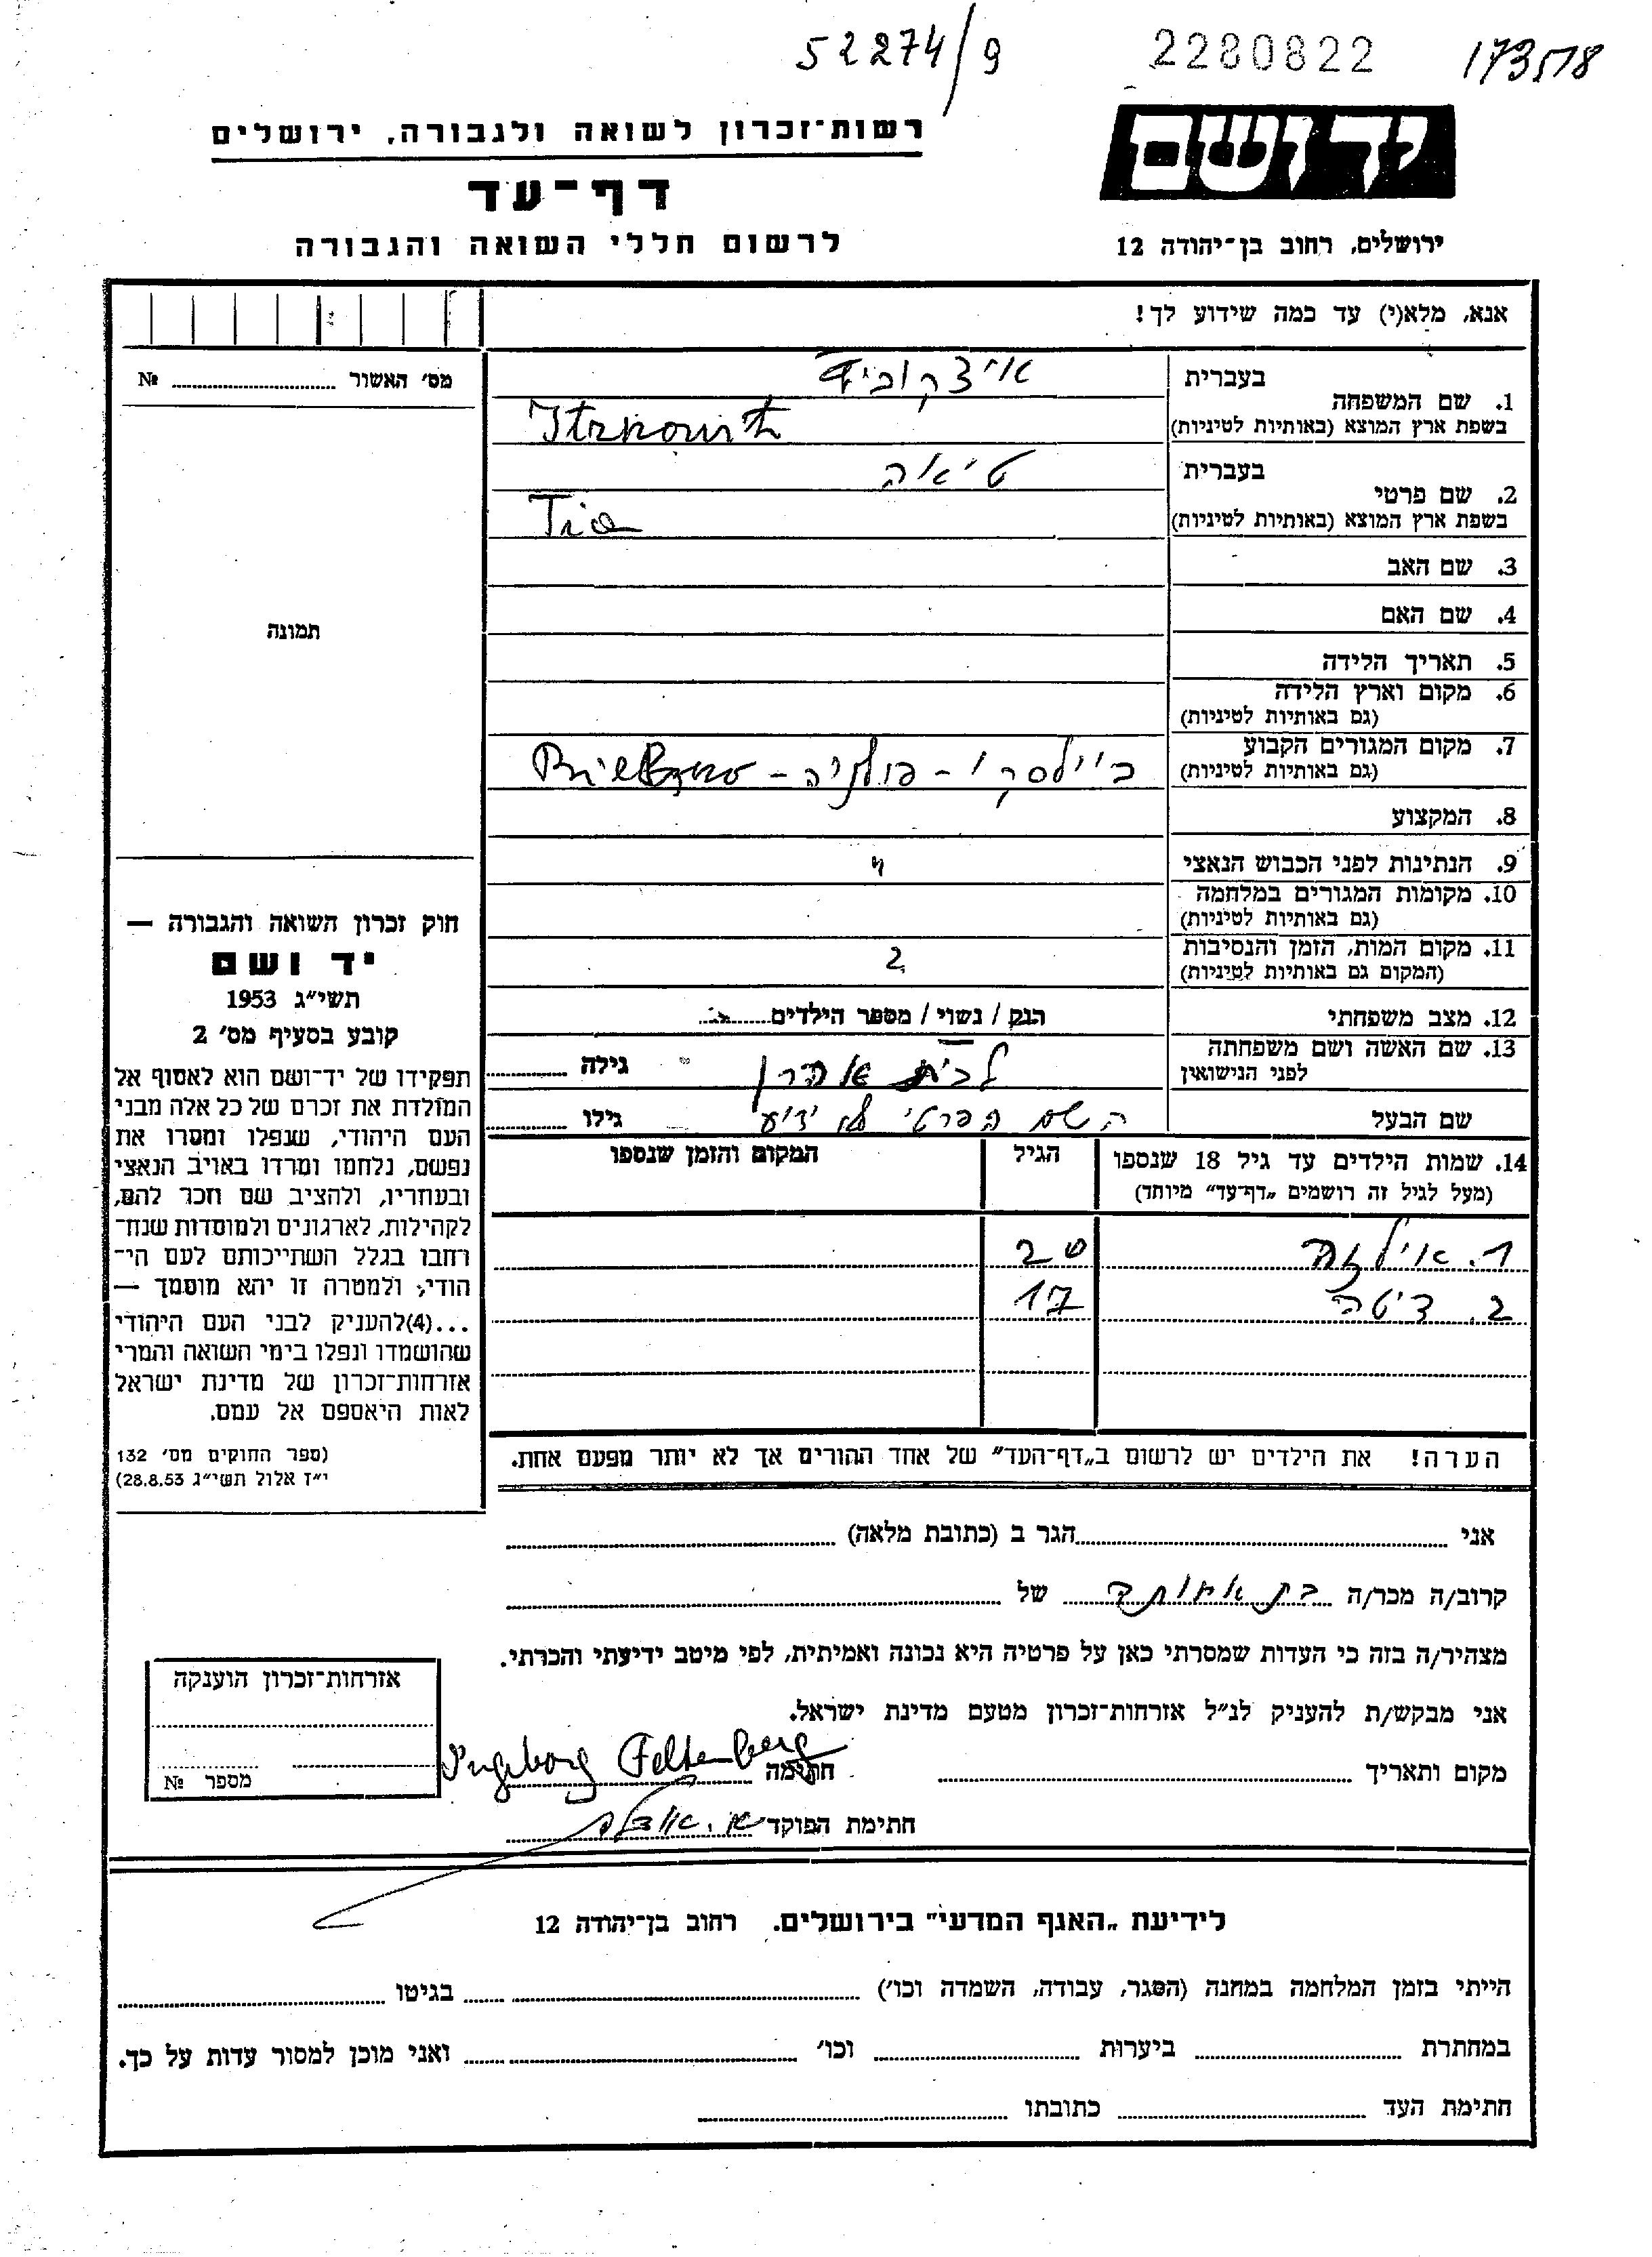 52274/9 2280822 173518
יד ושם
רשות־זכרון לשואה ולגבורה, ירושלים
דף־עד
ירושלים, רחוב בן־יהודה 12
לרשום חללי השואה והגבורה
אנא, מלא(י) עד כמה שידוע לך!
1. שם המשפחה
בעברית
איצקוביץ
בשפת ארץ המוצא (באותיות לטיניות)
Itzkowitz
2. שם פרטי
בעברית
טיאה
בשפת ארץ המוצא (באותיות לטיניות)
Tia
3. שם האב
4. שם האם
5. תאריך הלידה
6. מקום וארץ הלידה
(גם באותיות לטיניות)
7. מקום המגורים הקבוע
(גם באותיות לטיניות)
פולניה
8. המקצוע
9. הנתינות לפני הכבוש הנאצי
10. מקומות המגורים במלחמה
(גם באותיות לטיניות)
11. מקום המות, הזמן והנסיבות
(המקום גם באותיות לטיניות)
12. מצב משפחתי
רווק / נשוי / מספר הילדים 2
13. שם האשה ושם משפחתה
לפני הנישואין
לבית אהרן
גילה
שם הבעל
השם הפרטי לא ידוע
גילו
14. שמות הילדים עד גיל 18 שנספו
(מעל לגיל זה רושמים „דף־עד” מיוחד)
הגיל
המקום והזמן שנספו
1. אילזה 20
2. דיטה 17
הערה! את הילדים יש לרשום ב„דף־העד” של אחד ההורים אך לא יותר מפעם אחת.
מס׳ האשור № 
תמונה
חוק זכרון השואה והגבורה —
יד ושם
תשי״ג 1953
קובע בסעיף מס׳ 2
תפקידו של יד־ושם הוא לאסוף אל
המולדת את זכרם של כל אלה מבני
העם היהודי, שנפלו ומסרו את
נפשם, נלחמו ומרדו באויב הנאצי
ובעוזריו, ולהציב שם וזכר להם,
לקהילות, לארגונים ולמוסדות שנח־
רבו בגלל השתייכותם לעם הי־
הודי; ולמטרה זו יהא מוסמך —
...(4)להעניק לבני העם היהודי
שהושמדו ונפלו בימי השואה והמרי
אזרחות־זכרון של מדינת ישראל
לאות היאספם אל עמם.
(ספר החוקים מס׳ 132
י״ז אלול תשי״ג 28.8.53)
אני הגר ב (כתובת מלאה)
קרוב/ה מכר/ה בת של
מצהיר/ה בזה כי העדות שמסרתי כאן על פרטיה היא נכונה ואמיתית, לפי מיטב ידיעתי והכרתי.
אני מבקש/ת להעניק לנ״ל אזרחות־זכרון מטעם מדינת ישראל.
מקום ותאריך חתימה Ingeborg Feltenberg
חתימת הפוקד
אזרחות־זכרון הוענקה
מספר №
לידיעת „האגף המדעי” בירושלים. רחוב בן־יהודה 12
הייתי בזמן המלחמה במחנה (הסגר, עבודה, השמדה וכו׳) בגיטו
במחתרת ביערות וכו׳ ואני מוכן למסור עדות על כך.
חתימת העד כתובתו